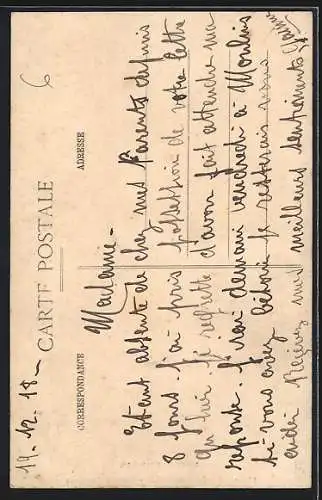 6
14. 12. 18 -
CARTE POSTALE
CORRESPONDANCE
ADRESSE
Madame -
Etant absente de chez mes Parents depuis
8 jours. j'ai pris possession de votre lettre
hier je regrette d'avoir fait attendre ma
reponse. J'irai demain vendredi à Moulins
si vous avez besoin je resterais vous
aider Recevez mes meilleurs sentiments